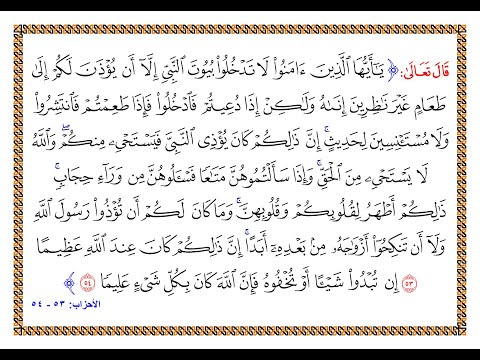 قَالَ تَعَالَى: ﴿ يَـٰٓأَيُّهَا ٱلَّذِينَ ءَامَنُوا۟ لَا تَدْخُلُوا۟ بُيُوتَ ٱلنَّبِىِّ إِلَّآ أَن يُؤْذَنَ لَكُمْ إِلَىٰ
طَعَامٍ غَيْرَ نَـٰظِرِينَ إِنَىٰهُ وَلَـٰكِنْ إِذَا دُعِيتُمْ فَٱدْخُلُوا۟ فَإِذَا طَعِمْتُمْ فَٱنتَشِرُوا۟
وَلَا مُسْتَـْٔنِسِينَ لِحَدِيثٍ ۚ إِنَّ ذَٰلِكُمْ كَانَ يُؤْذِى ٱلنَّبِىَّ فَيَسْتَحْىِۦ مِنكُمْ ۖ وَٱللَّهُ
لَا يَسْتَحْىِۦ مِنَ ٱلْحَقِّ ۚ وَإِذَا سَأَلْتُمُوهُنَّ مَتَـٰعًا فَسْـَٔلُوهُنَّ مِن وَرَآءِ حِجَابٍ ۚ
ذَٰلِكُمْ أَطْهَرُ لِقُلُوبِكُمْ وَقُلُوبِهِنَّ ۚ وَمَا كَانَ لَكُمْ أَن تُؤْذُوا۟ رَسُولَ ٱللَّهِ
وَلَآ أَن تَنكِحُوٓا۟ أَزْوَٰجَهُۥ مِنۢ بَعْدِهِۦٓ أَبَدًا ۚ إِنَّ ذَٰلِكُمْ كَانَ عِندَ ٱللَّهِ عَظِيمًا
٥٣ إِن تُبْدُوا۟ شَيْـًٔا أَوْ تُخْفُوهُ فَإِنَّ ٱللَّهَ كَانَ بِكُلِّ شَىْءٍ عَلِيمًا ٥٤ ﴾
الأحزاب: ٥٣ - ٥٤